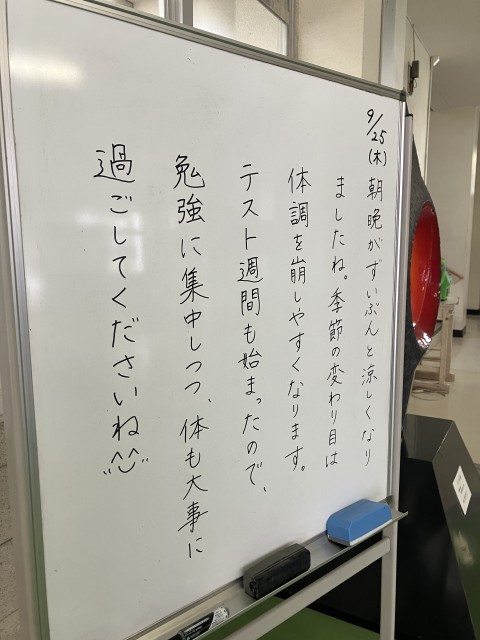 9/25(木)
朝晩がずいぶんと涼しくなり
ましたね。季節の変わり目は
体調を崩しやすくなります。
テスト週間も始まったので、
勉強に集中しつつ、体も大事に
過ごしてくださいね